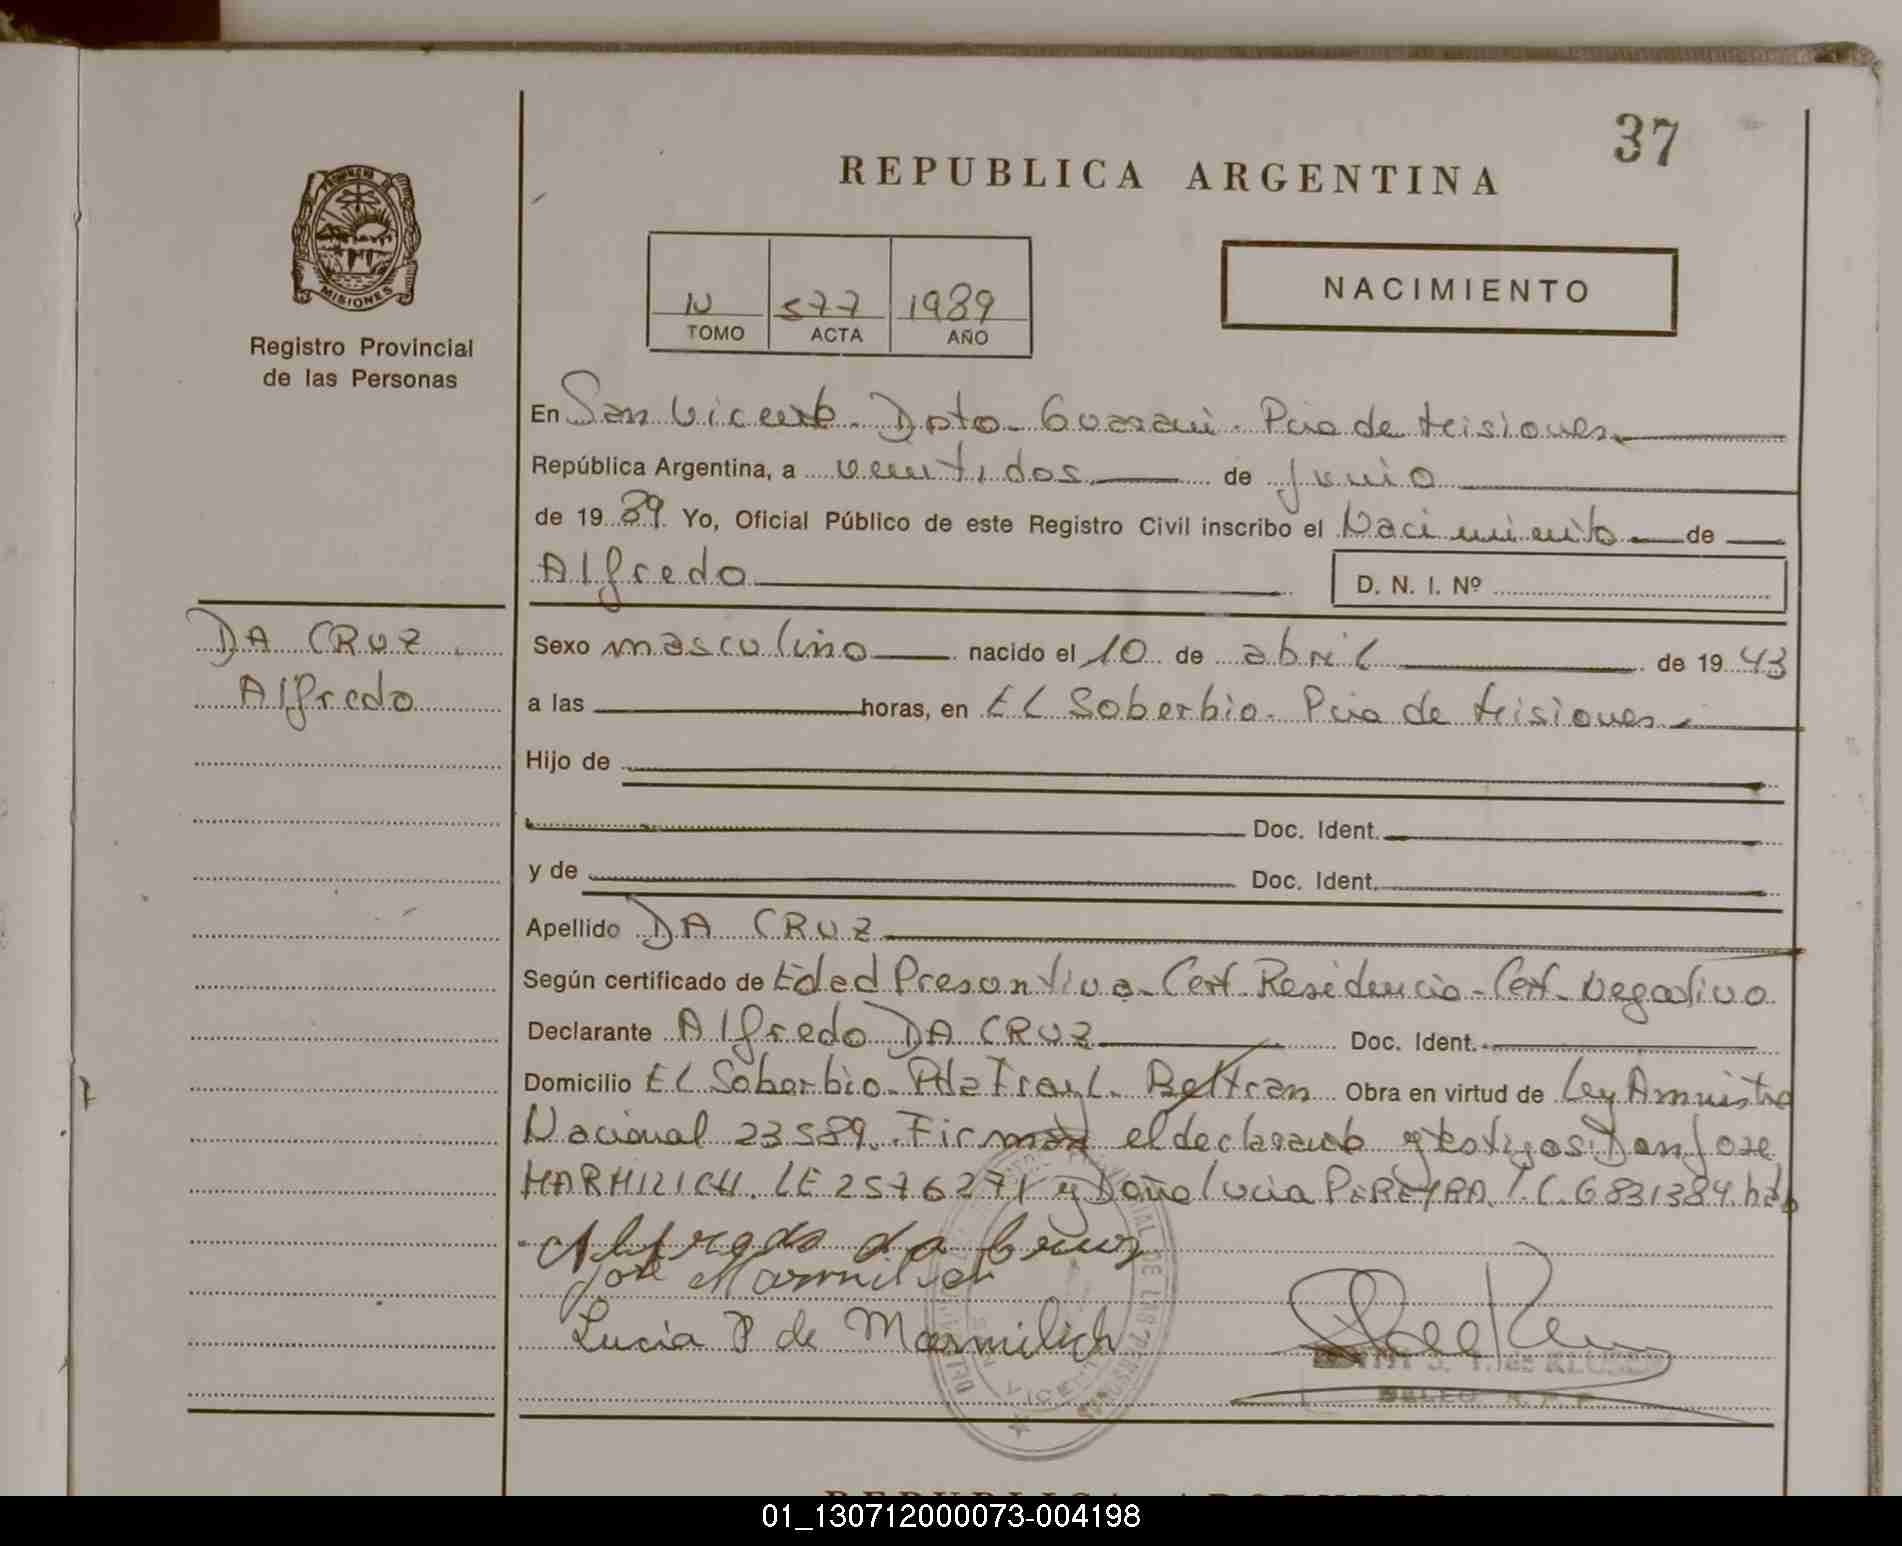 37
REPUBLICA ARGENTINA
PROVINCIA DE
MISIONES
Registro Provincial
de las Personas
NACIMIENTO
577 1989
TOMO ACTA AÑO
En San Vicente. Dpto. Guarani. Pcia de Misiones.
República Argentina, a veintidos de junio
de 1989 Yo, Oficial Público de este Registro Civil inscribo el Nacimiento de
Alfredo D. N. I. Nº
DA CRUZ
Alfredo
Sexo masculino nacido el 10 de abril de 1943
a las horas, en El Soberbio. Pcia de Misiones.
Hijo de
Doc. Ident.
y de Doc. Ident.
Apellido DA CRUZ
Según certificado de Edad Presuntiva. Cert. Residencia. Cert. Negativo
Declarante Alfredo DA CRUZ Doc. Ident.
Domicilio El Soberbio. Beltran Obra en virtud de Ley Amnistia
Nacional 23589. Firman el declarante y testigos Don Jose
MARMILICH. LE 2576271 y Doña Lucia PEREYRA L.C. 6831384.
Alfredo da Cruz
Jose Marmilich
Lucia P de Marmilich
01_130712000073-004198